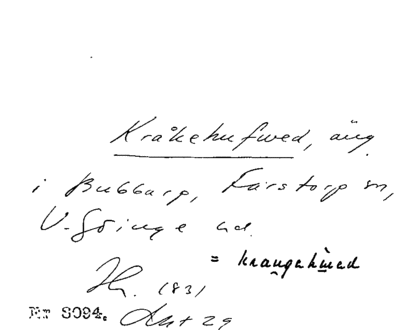 Kråkehufwed, äng
i Bubbarp, Färstorp sn,
V. Göinge hd.
= krangahwed
1831
Nr 8094. Akt 29